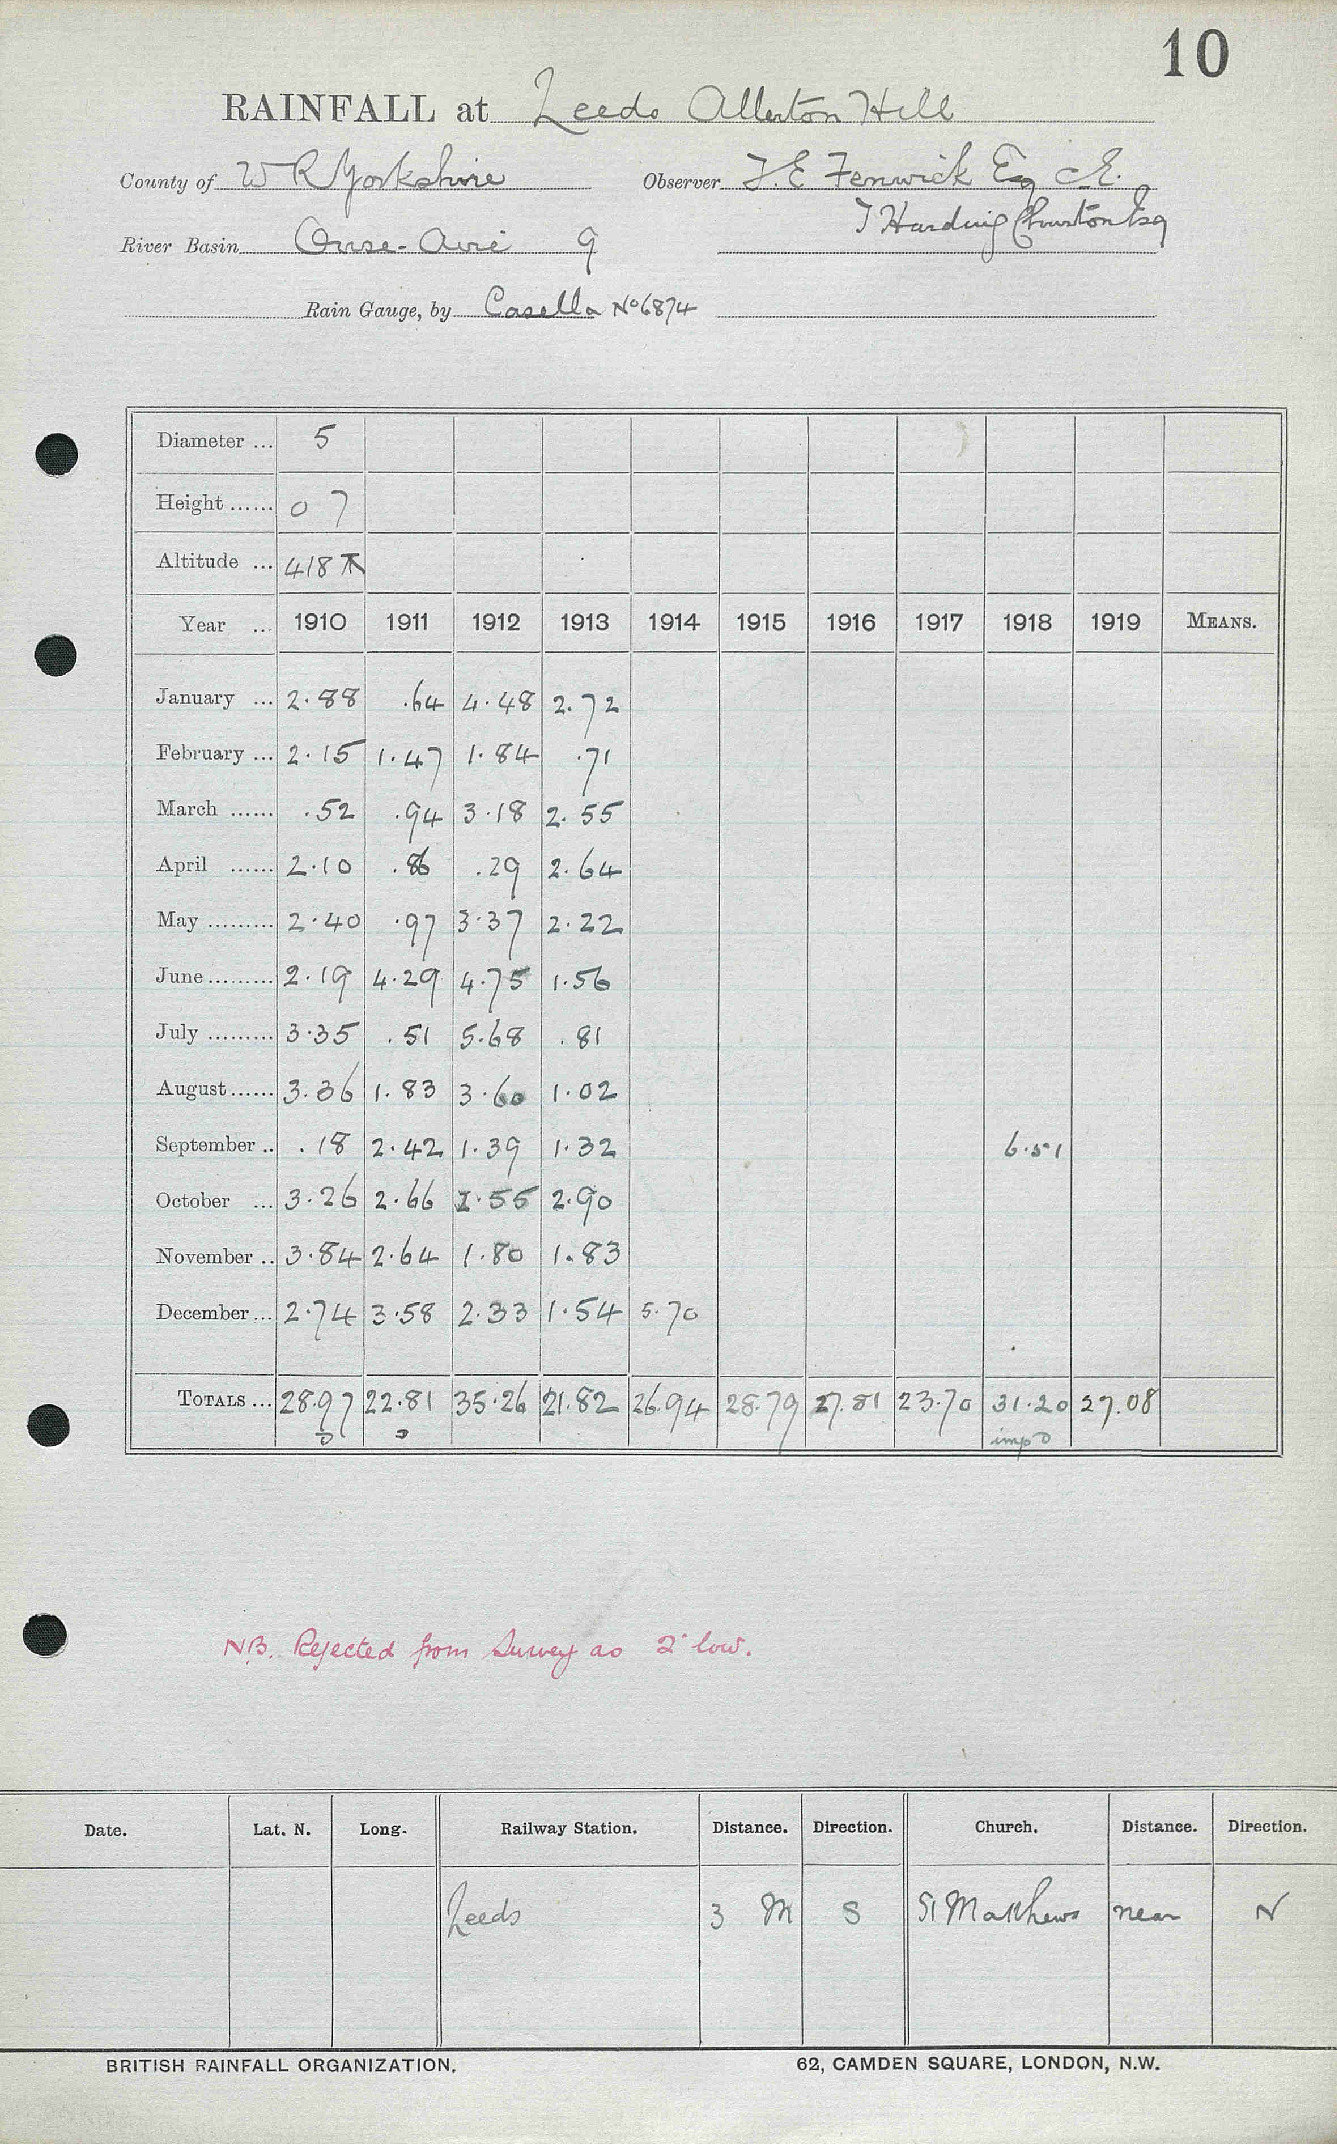 10
RAINFALL at Leeds Allerton Hill
County of W R Yorkshire Observer T. E. Fenwick Esq C.E.
T Harding Churton Esq
River Basin Ouse-Aire 9
Rain Gauge, by Casella No 6874
Diameter ... 5
Height ...... 0 7
Altitude ... 418
Year ... 1910 1911 1912 1913 1914 1915 1916 1917 1918 1919 MEANS.
January ... 2.88 .64 4.48 2.72
February ... 2.15 1.47 1.84 .71
March ...... .52 .94 3.18 2.55
April ...... 2.10 .86 .29 2.64
May ......... 2.40 .97 3.37 2.22
June ......... 2.19 4.29 4.75 1.56
July ......... 3.35 .51 5.68 .81
August ...... 3.36 1.83 3.60 1.02
September .. .18 2.42 1.39 1.32 6.51
October ... 3.26 2.66 2.55 2.90
November .. 3.84 2.64 1.80 1.83
December ... 2.74 3.58 2.33 1.54 5.70
TOTALS ... 28.97 22.81 35.26 21.82 26.94 28.79 27.81 23.70 31.20 27.08
NB. Rejected from Survey as 2" low.
Date. Lat. N. Long. Railway Station. Distance. Direction. Church. Distance. Direction.
Leeds 3 M S St Matthews near N
BRITISH RAINFALL ORGANIZATION. 62, CAMDEN SQUARE, LONDON, N.W.